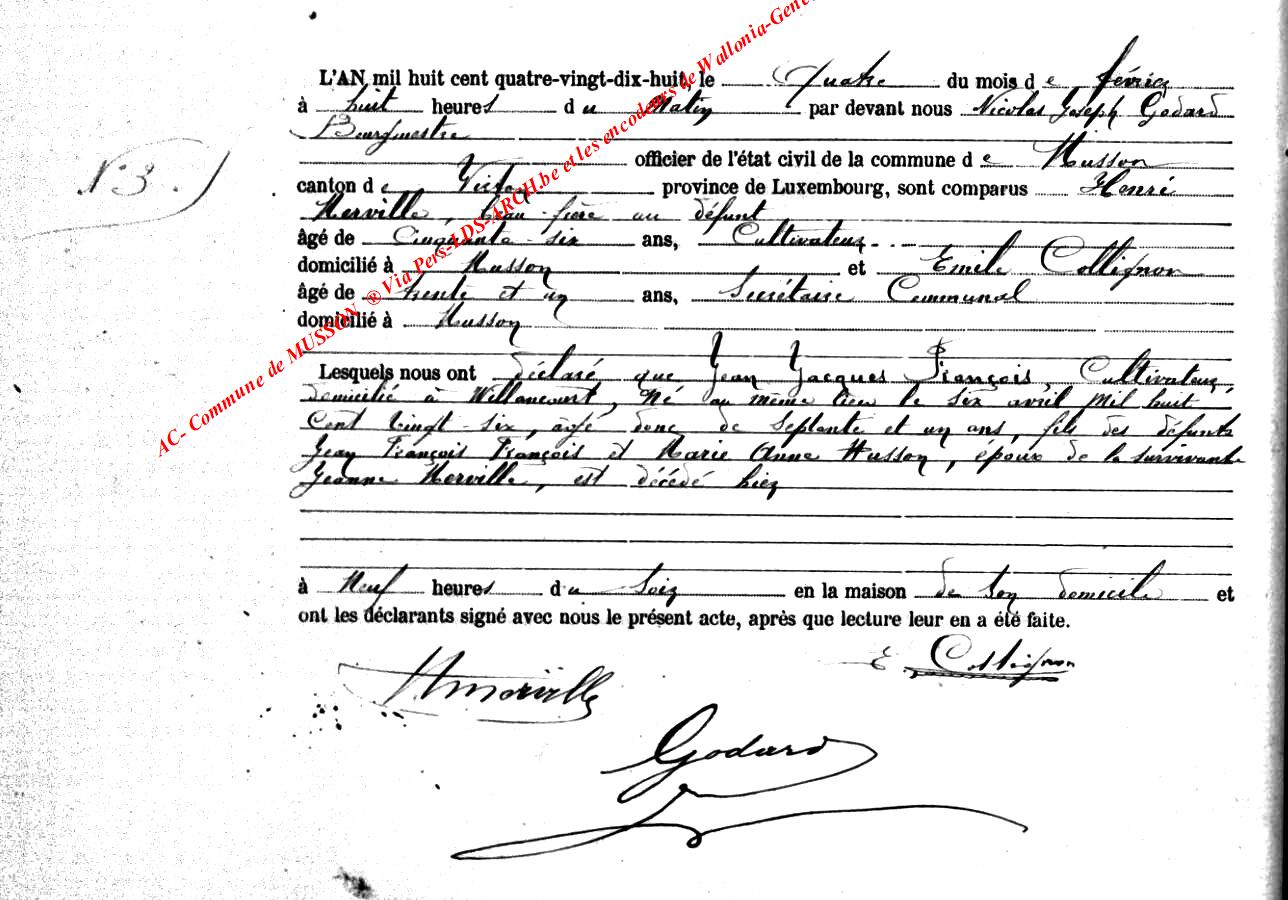 L'AN mil huit cent quatre-vingt-dix-huit, le Quatre du mois de février
à huit heures du Matin par devant nous Nicolas Joseph Godard
Bourgmestre
officier de l'état civil de la commune de Musson
N° 3.
canton de Virton province de Luxembourg, sont comparus Henri
Merville, beau-frère au défunt
âgé de Cinquante-six ans, Cultivateur
domicilié à Musson et Emile Collignon
âgé de trente et un ans, Secrétaire Communal
domicilié à Musson
Lesquels nous ont déclaré que Jean Jacques François, Cultivateur,
domicilié à Willancourt, Né au même lieu le six avril Mil huit
Cent Vingt-six, âgé donc de Septante et un ans, fils des défunts
Jean François François et Marie Anne Husson, époux de la survivante
Jeanne Merville, est décédé hier
à Neuf heures du Soir en la maison de son domicile et
ont les déclarants signé avec nous le présent acte, après que lecture leur en a été faite.
E. Collignon
HMerville
Godard
AC- Commune de MUSSON ® Via Pers-LDS-ARCH.be et les encodeurs de Wallonia-Gene